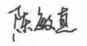 陈敏直